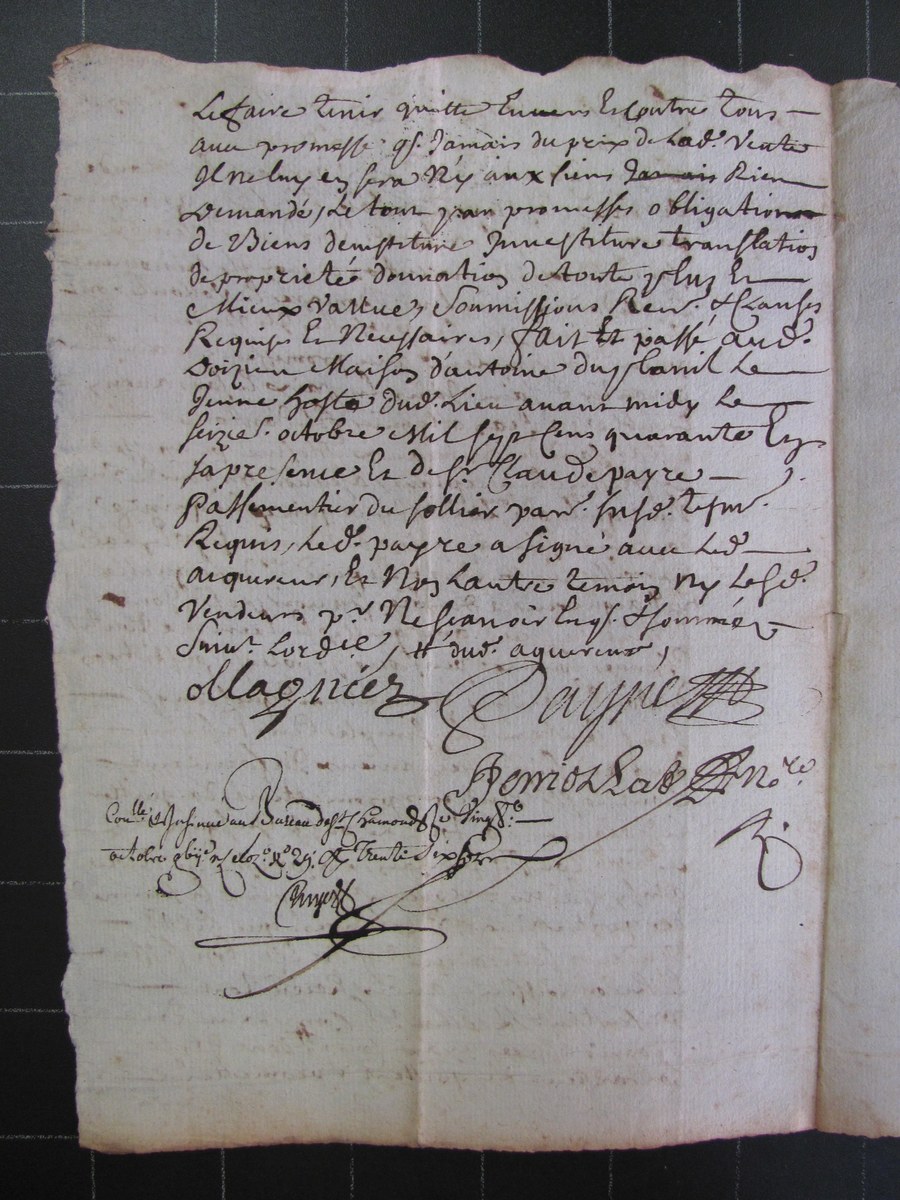 Le faire tenir quitte Envers Et Contre tous
avec promesse q. Jamais du prix de Lad. Vente
Il ne luy en sera Ny aux siens Jamais Rien
Demandé, Le tout par promesses obligation
de Biens demestiture Jnvestiture translation
de proprieté donnation de toute plus Et
Mieux Vallue, Soumissions Ren. & Clauses
Requises Et Necessaires, fait Et passé aud.
Doizieu Maison d'antoine duplanil Le
Jeune hoste dud. Lieu avant midy Le
seizie. octobre Mil sept Cens quarante En
la presence Et de Sr Claude payre
Passementier du Sollier par. susd. tesm.
Requis, Led. payre a signé avec Led.
acquereur, Et Non Lautre temoin Ny Lesd.
Vendeurs pr. Ne Scavoir Enq. & Sommés
Suiv. Lord. , & dud. aquereur,
Magniez Payre
nre
Conllé & Jnsinué au Bureau de St Chamond le Vingt
octobre Trente six